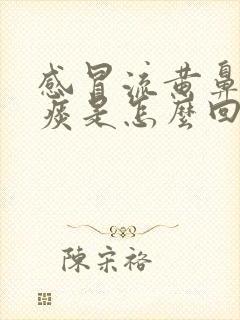 感冒流黄鼻
痰是怎麼回
陳宋裕